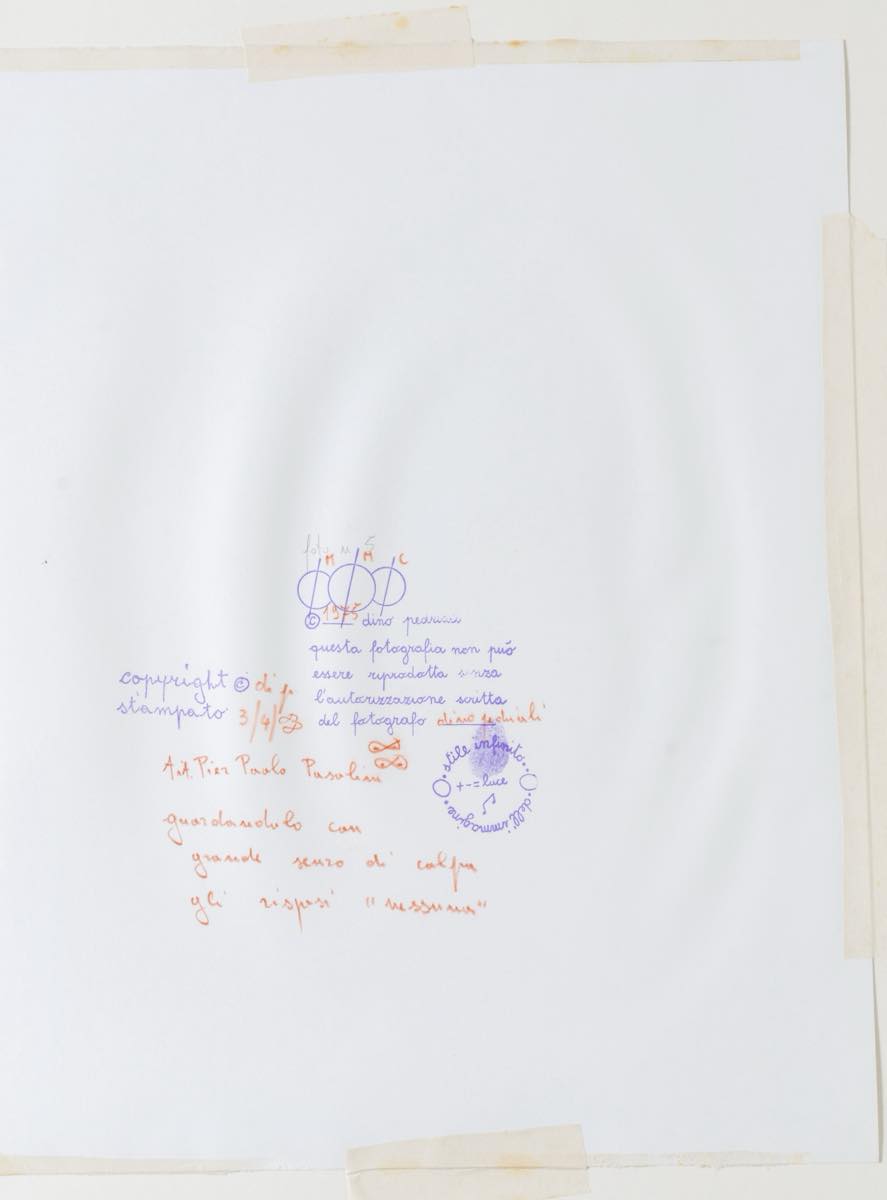 foto n 5
M M C
© 1975 dino pedriali
questa fotografia non può
essere riprodotta senza
l'autorizzazione scritta
del fotografo dino pedriali
copyright © di p.
stampato 3/4/
Art. Pier Paolo Pasolini
guardandolo con
grande senso di colpa
gli risposi "nessuna"
stile infinito
dell'immagine
+-=luce